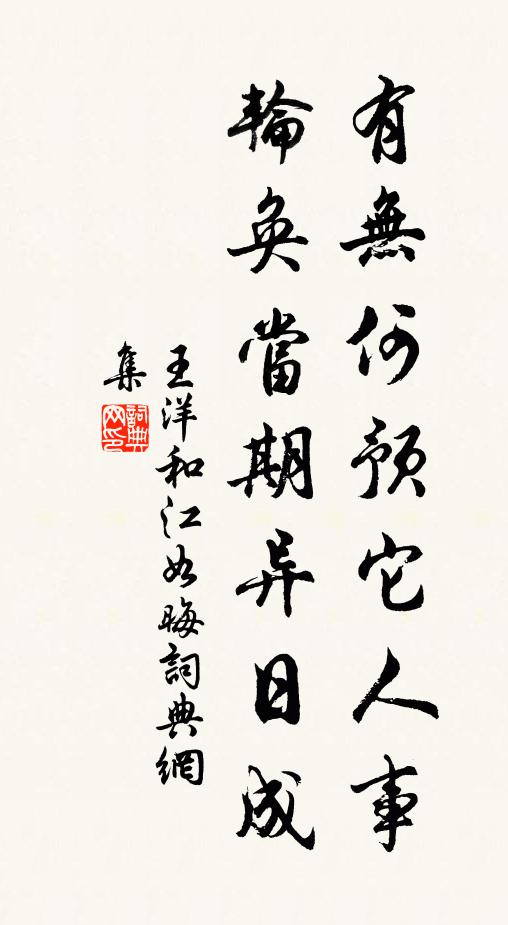 有無何預它人事
輪奐當期异日成
王洋和江如晦詞典網
集
詞典网印